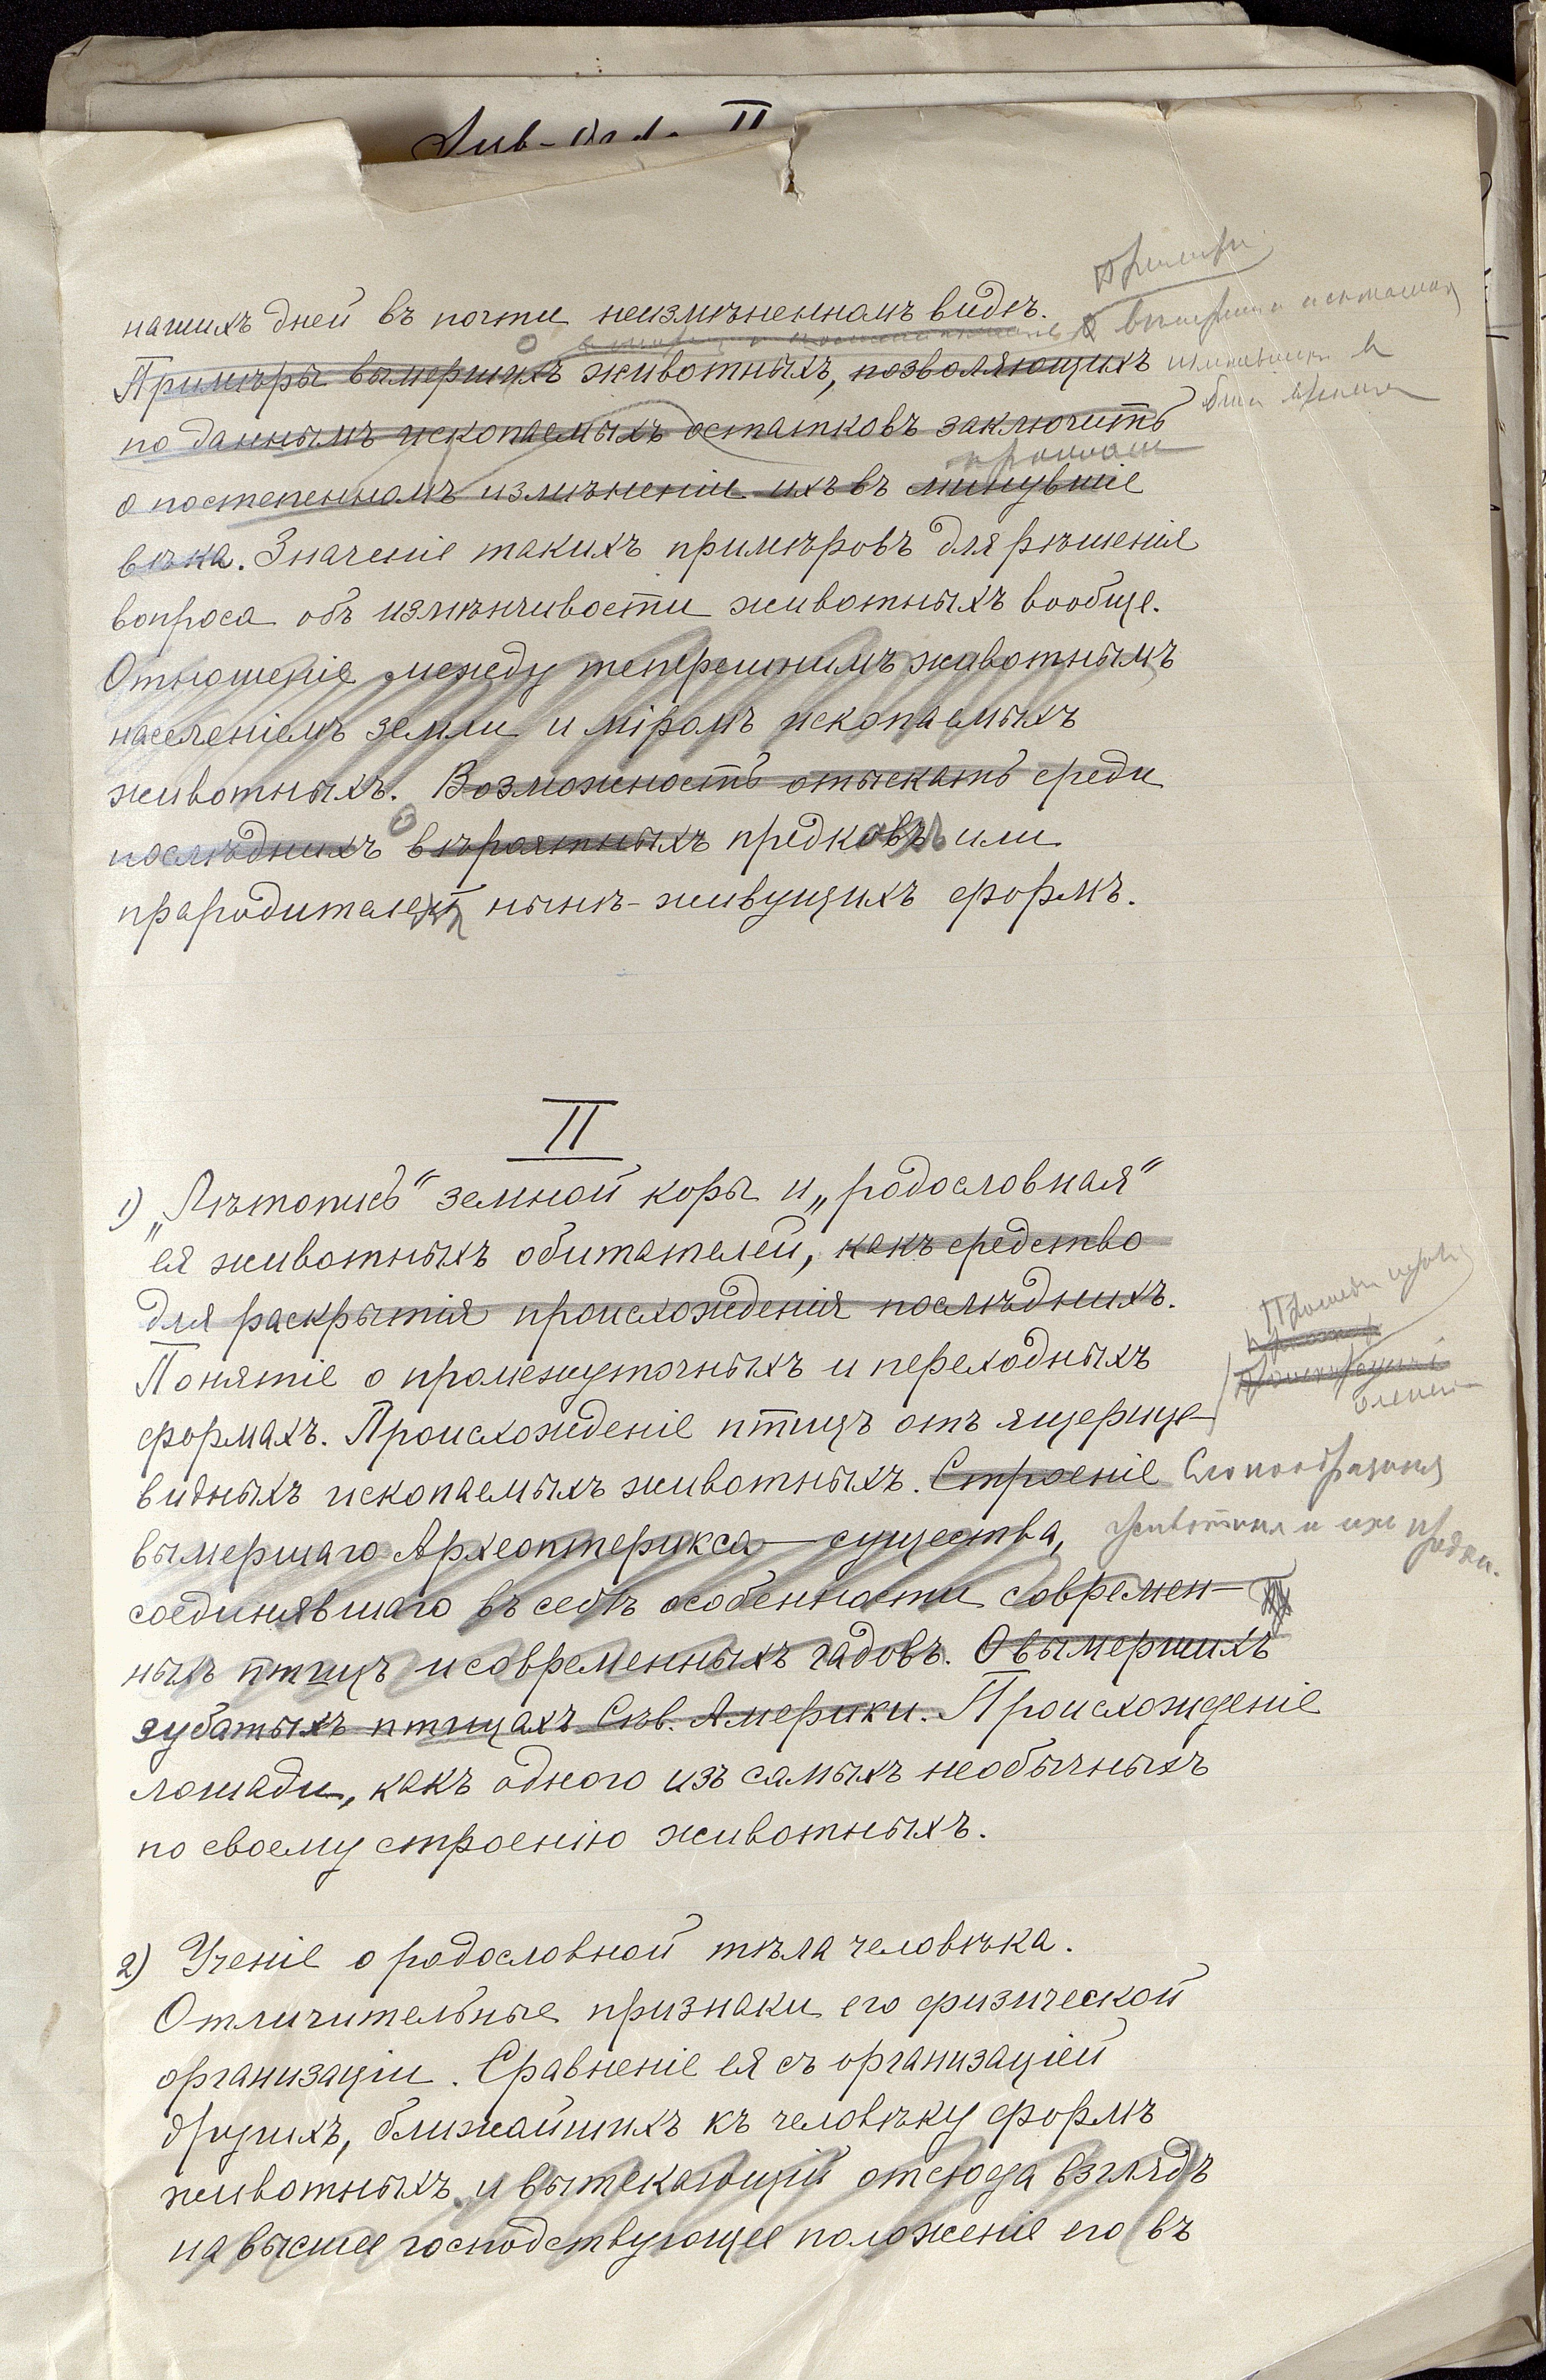 Sub-
нашихъ дней въ почти неизмѣненномъ видѣ.
Примѣры вымершихъ животныхъ, позволяющихъ
по даннымъ ископаемыхъ остатковъ заключить
о постепенномъ измѣненіи ихъ въ минувшіе
вѣка. Значеніе такихъ примѣровъ для рѣшенія
вопроса объ измѣнчивости животныхъ вообще.
Отношеніе между теперешнимъ животнымъ
населеніемъ земли и міромъ ископаемыхъ
животныхъ. Возможность отыскать среди
послѣднихъ вѣроятныхъ предковъ или
прародителей нынѣ-живущихъ формъ.
II
1) „Лѣтопись“ земной коры и „родословная“
ея животныхъ обитателей, какъ средство
для раскрытія происхожденія послѣднихъ.
Понятіе о промежуточныхъ и переходныхъ
формахъ. Происхожденіе птицъ отъ ящерице-
видныхъ ископаемыхъ животныхъ. Строеніе
Слонообразныя
вымершаго Археоптерикса — существа,
животныя и ихъ предки.
соединявшаго въ себѣ особенности современ-
ныхъ птицъ и современныхъ гадовъ. О вымершихъ
зубатыхъ птицахъ Сѣв. Америки. Происхожденіе
лошади, какъ одного изъ самыхъ необычныхъ
по своему строенію животныхъ.
2) Ученіе о родословной тѣла человѣка.
Отличительные признаки его физической
организаціи. Сравненіе ея съ организаціей
другихъ, ближайшихъ къ человѣку формъ
животныхъ и вытекающій отсюда взглядъ
на высшее господствующее положеніе его въ